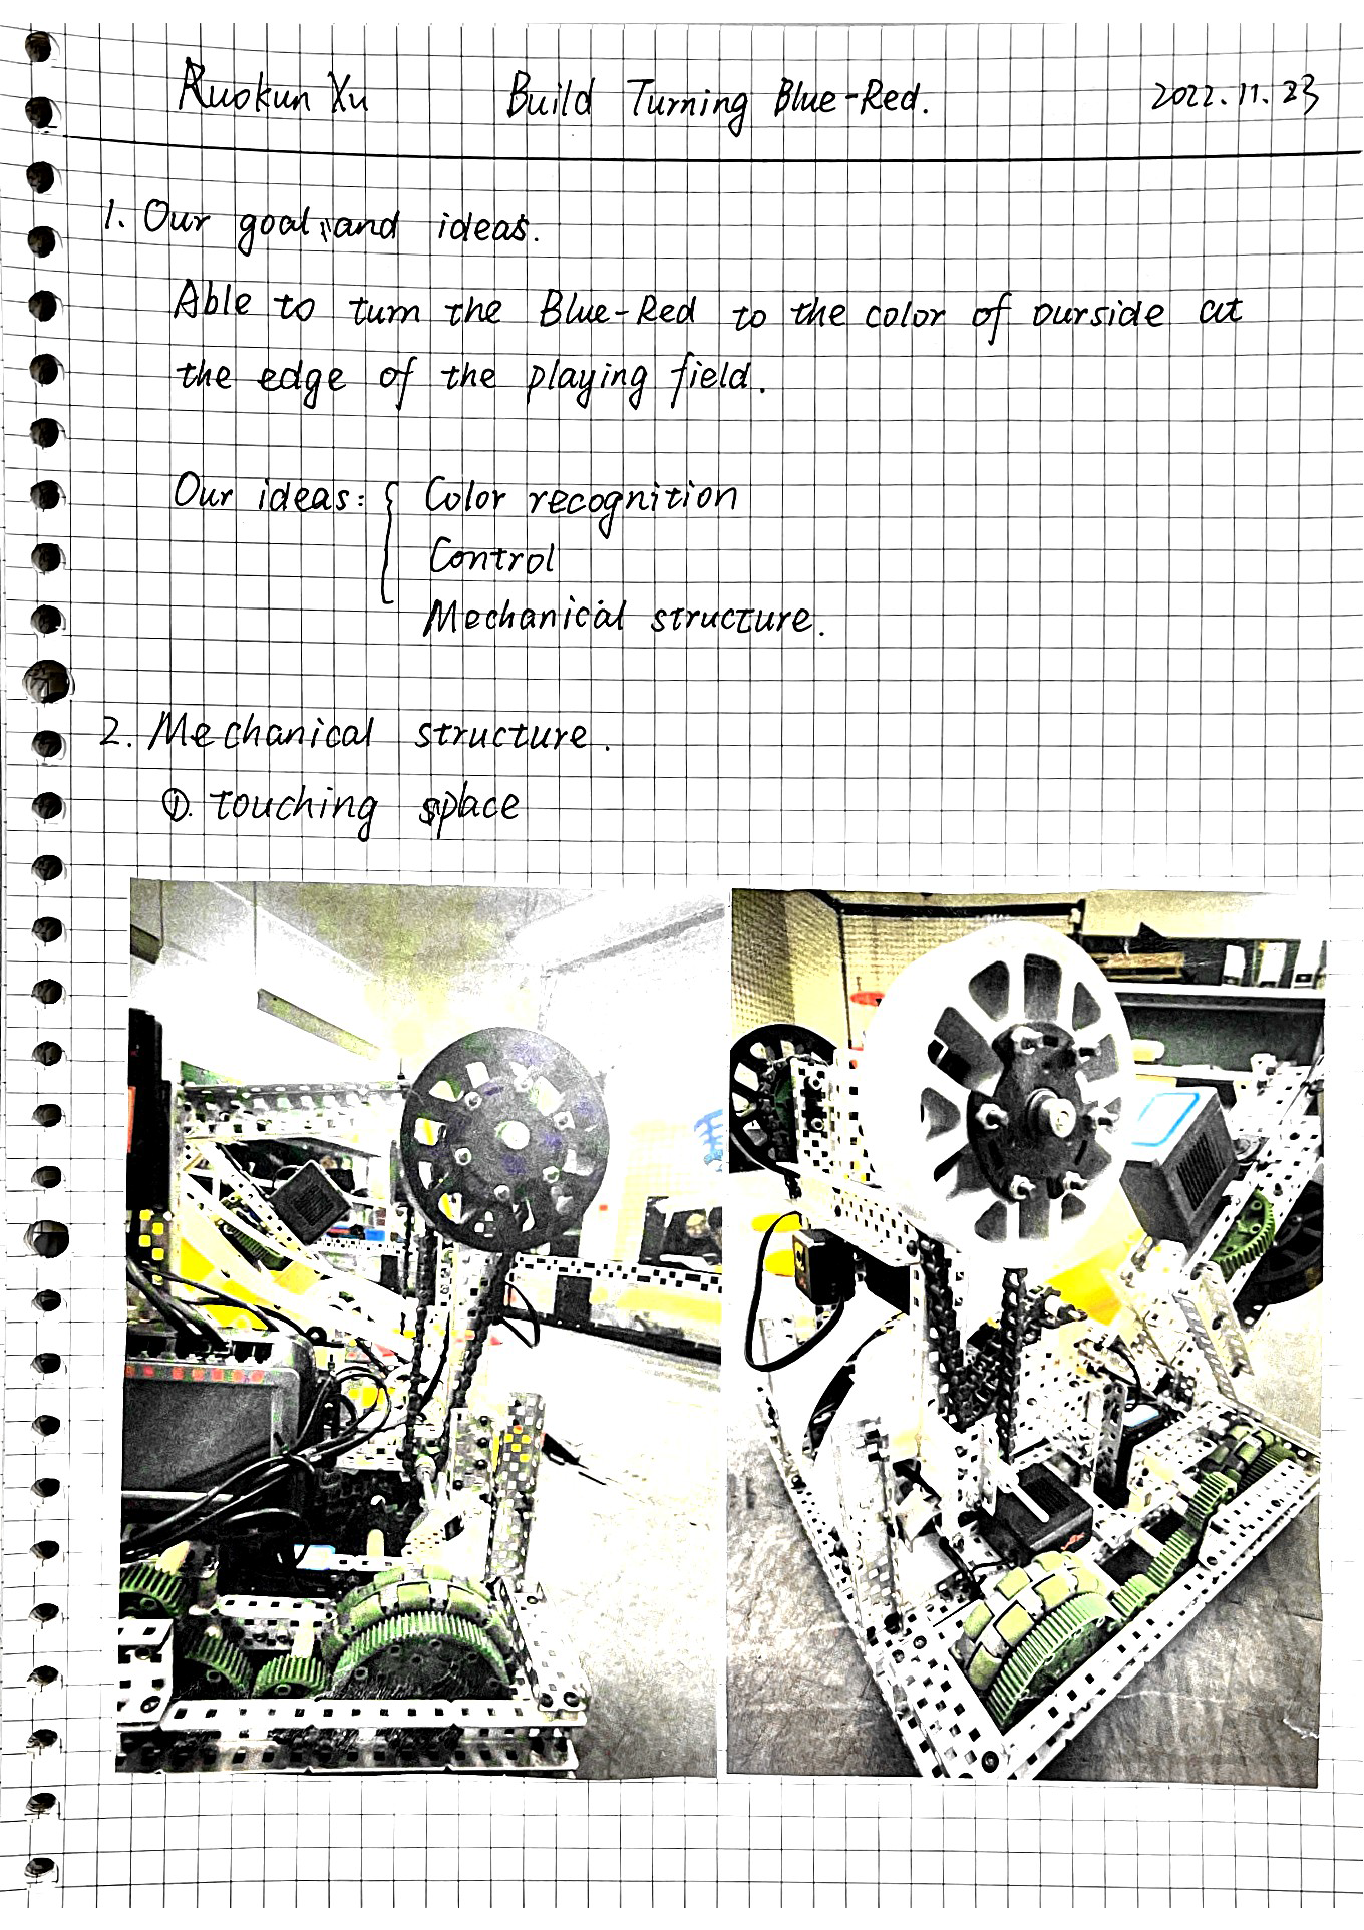 Ruokun Xu Build Turning Blue-Red. 2022.11.23
1. Our goal and ideas.
Able to turn the Blue-Red to the color of ourside at
the edge of the playing field.
Our ideas: { Color recognition
Control
Mechanical structure.
2. Mechanical structure.
①. touching splace